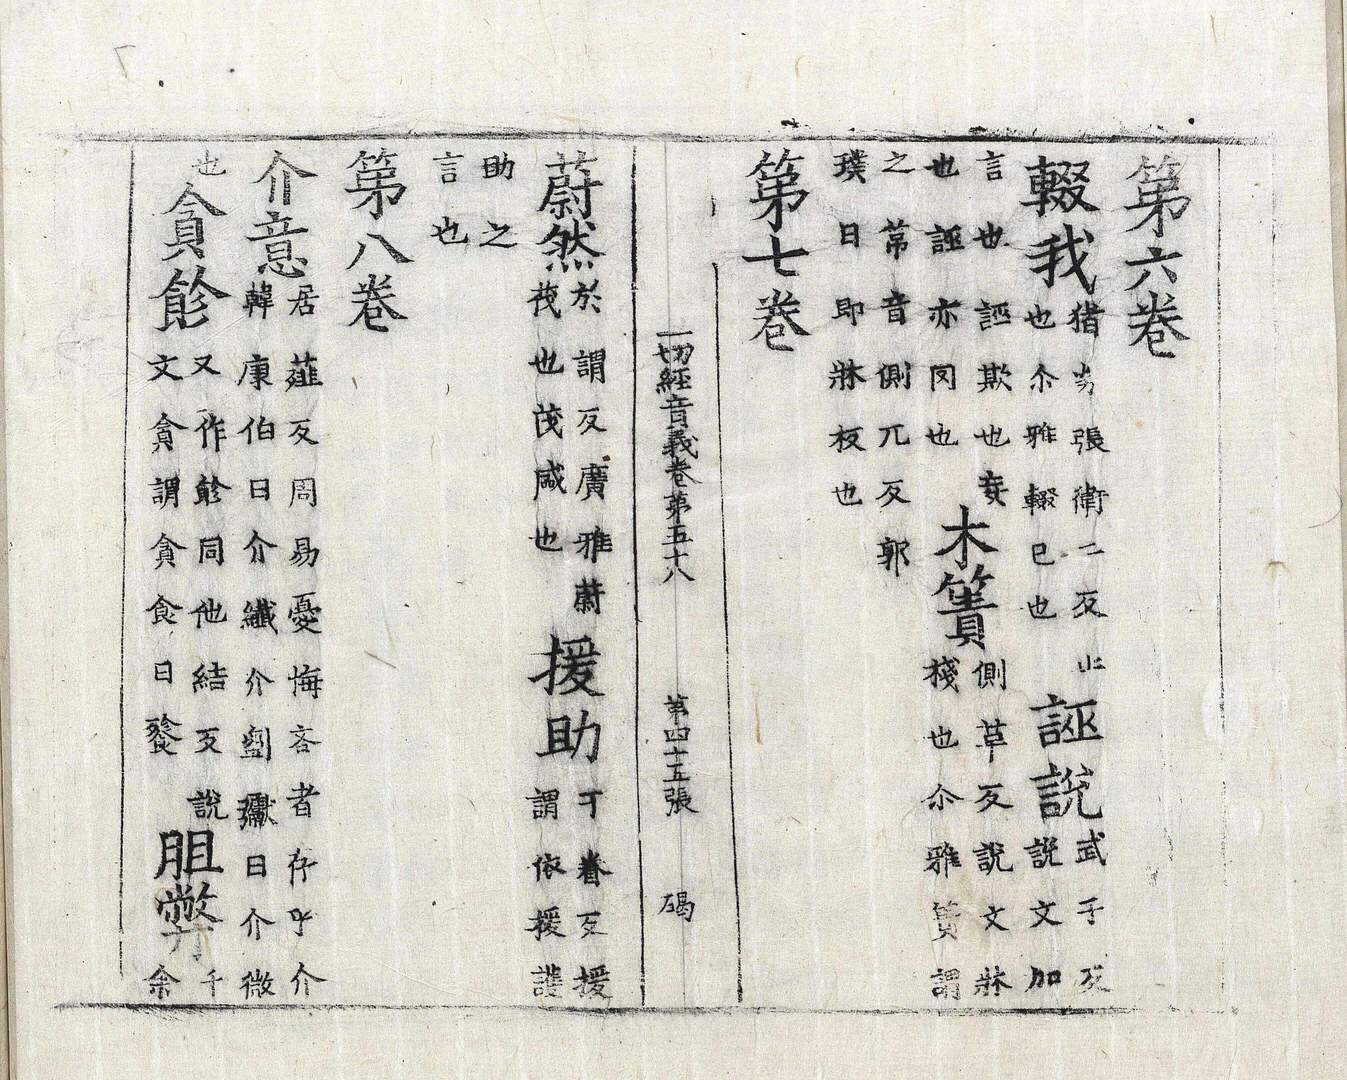 第六卷
輟我猪劣張衛二反止也尒雅輟已也誣說武于反說文加
言也誣欺也妄也誣亦罔也木簀側草反說文牀棧也尒雅簀謂
之苐音側兀反郭璞曰即牀板也
第七卷
一切經音義卷第五十八 第四十五張 碣
蔚然於謂反廣雅蔚茂也茂咸也援助于眷反援謂依援護
助之言也
第八卷
介意居薤反周易憂悔吝者存乎介韓康伯曰介纖介劉瓛曰介微
也貪飻又作飻同他結反說文貪謂貪食曰餮胆弊千余